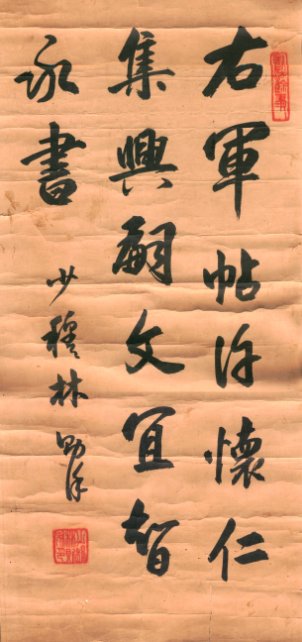 右軍帖許懷仁
集興嗣文宜智
永書 少穆林則徐